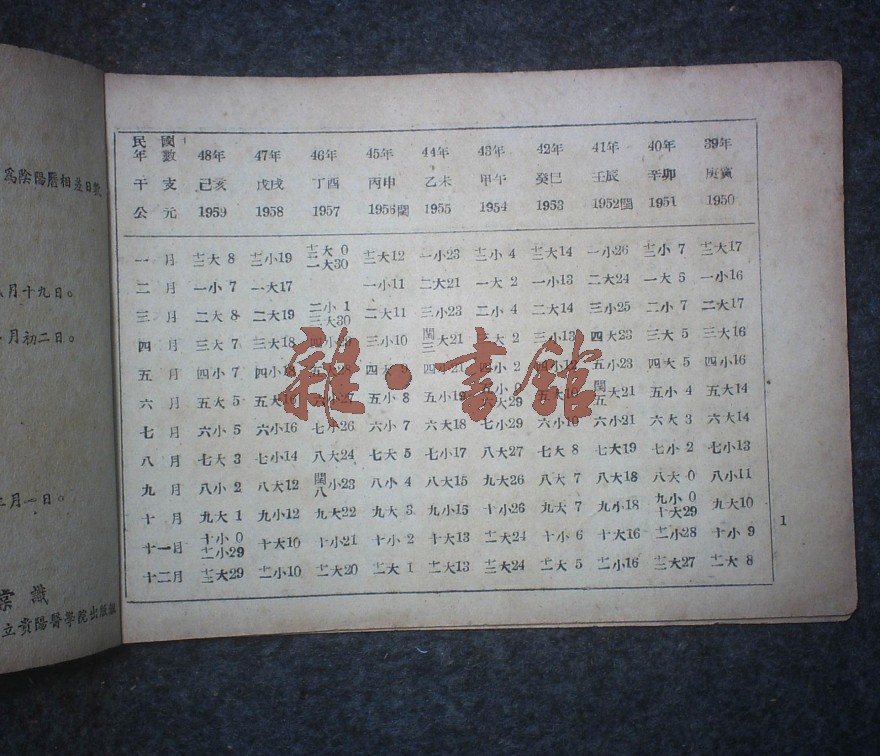 為陰陽曆相差日數
八月十九日。
月初二日。
月一日。
識
立貴陽醫學院出版組
民國年數 48年 47年 46年 45年 44年 43年 42年 41年 40年 39年
干支 己亥 戊戌 丁酉 丙申 乙未 甲午 癸巳 壬辰 辛卯 庚寅
公元 1959 1958 1957 1956閏 1955 1954 1953 1952閏 1951 1950
一月 十二大8 十二小19 十二大0 一大30 十二大12 一小23 十二小4 十二大14 一小26 十二小7 十二大17
二月 一小7 一大17 一小11 二大21 一大2 一小13 二大24 一大5 一小16
三月 二大8 二大19 二小1 三大30 二大11 三小23 二小4 二大14 三小25 二小7 二大17
四月 三大7 三大18 四小29 三小10 閏三大21 三大2 三小13 四大23 三大5 三大16
五月 四小7 四小18 四小21 四小2 五小23 四大5 四小16
六月 五大5 五大16 六小27 五小8 五小19 閏五大21 五小4 五大14
七月 六小5 六小16 七小26 六小7 六大18 七小29 六小10 六小21 六大3 六大14
八月 七大3 七小14 八大24 七大5 七小17 八大27 七大8 七大19 七小2 七小13
九月 八小2 八大12 閏八小23 八小4 八大15 九大26 八大7 八大18 八大0 八小11
十月 九大1 九小12 九大22 九大3 九小15 十小26 九大7 九小18 九小0 十大29 九大10
十一月 十小0 十一小29 十大10 十小21 十小2 十大13 十一大24 十小6 十大16 十一小28 十小9
十二月 十二大29 十一小10 十一大20 十一大1 十一大13 十二大24 十一大5 十一小16 十二大27 十一大8
1
雜·書館